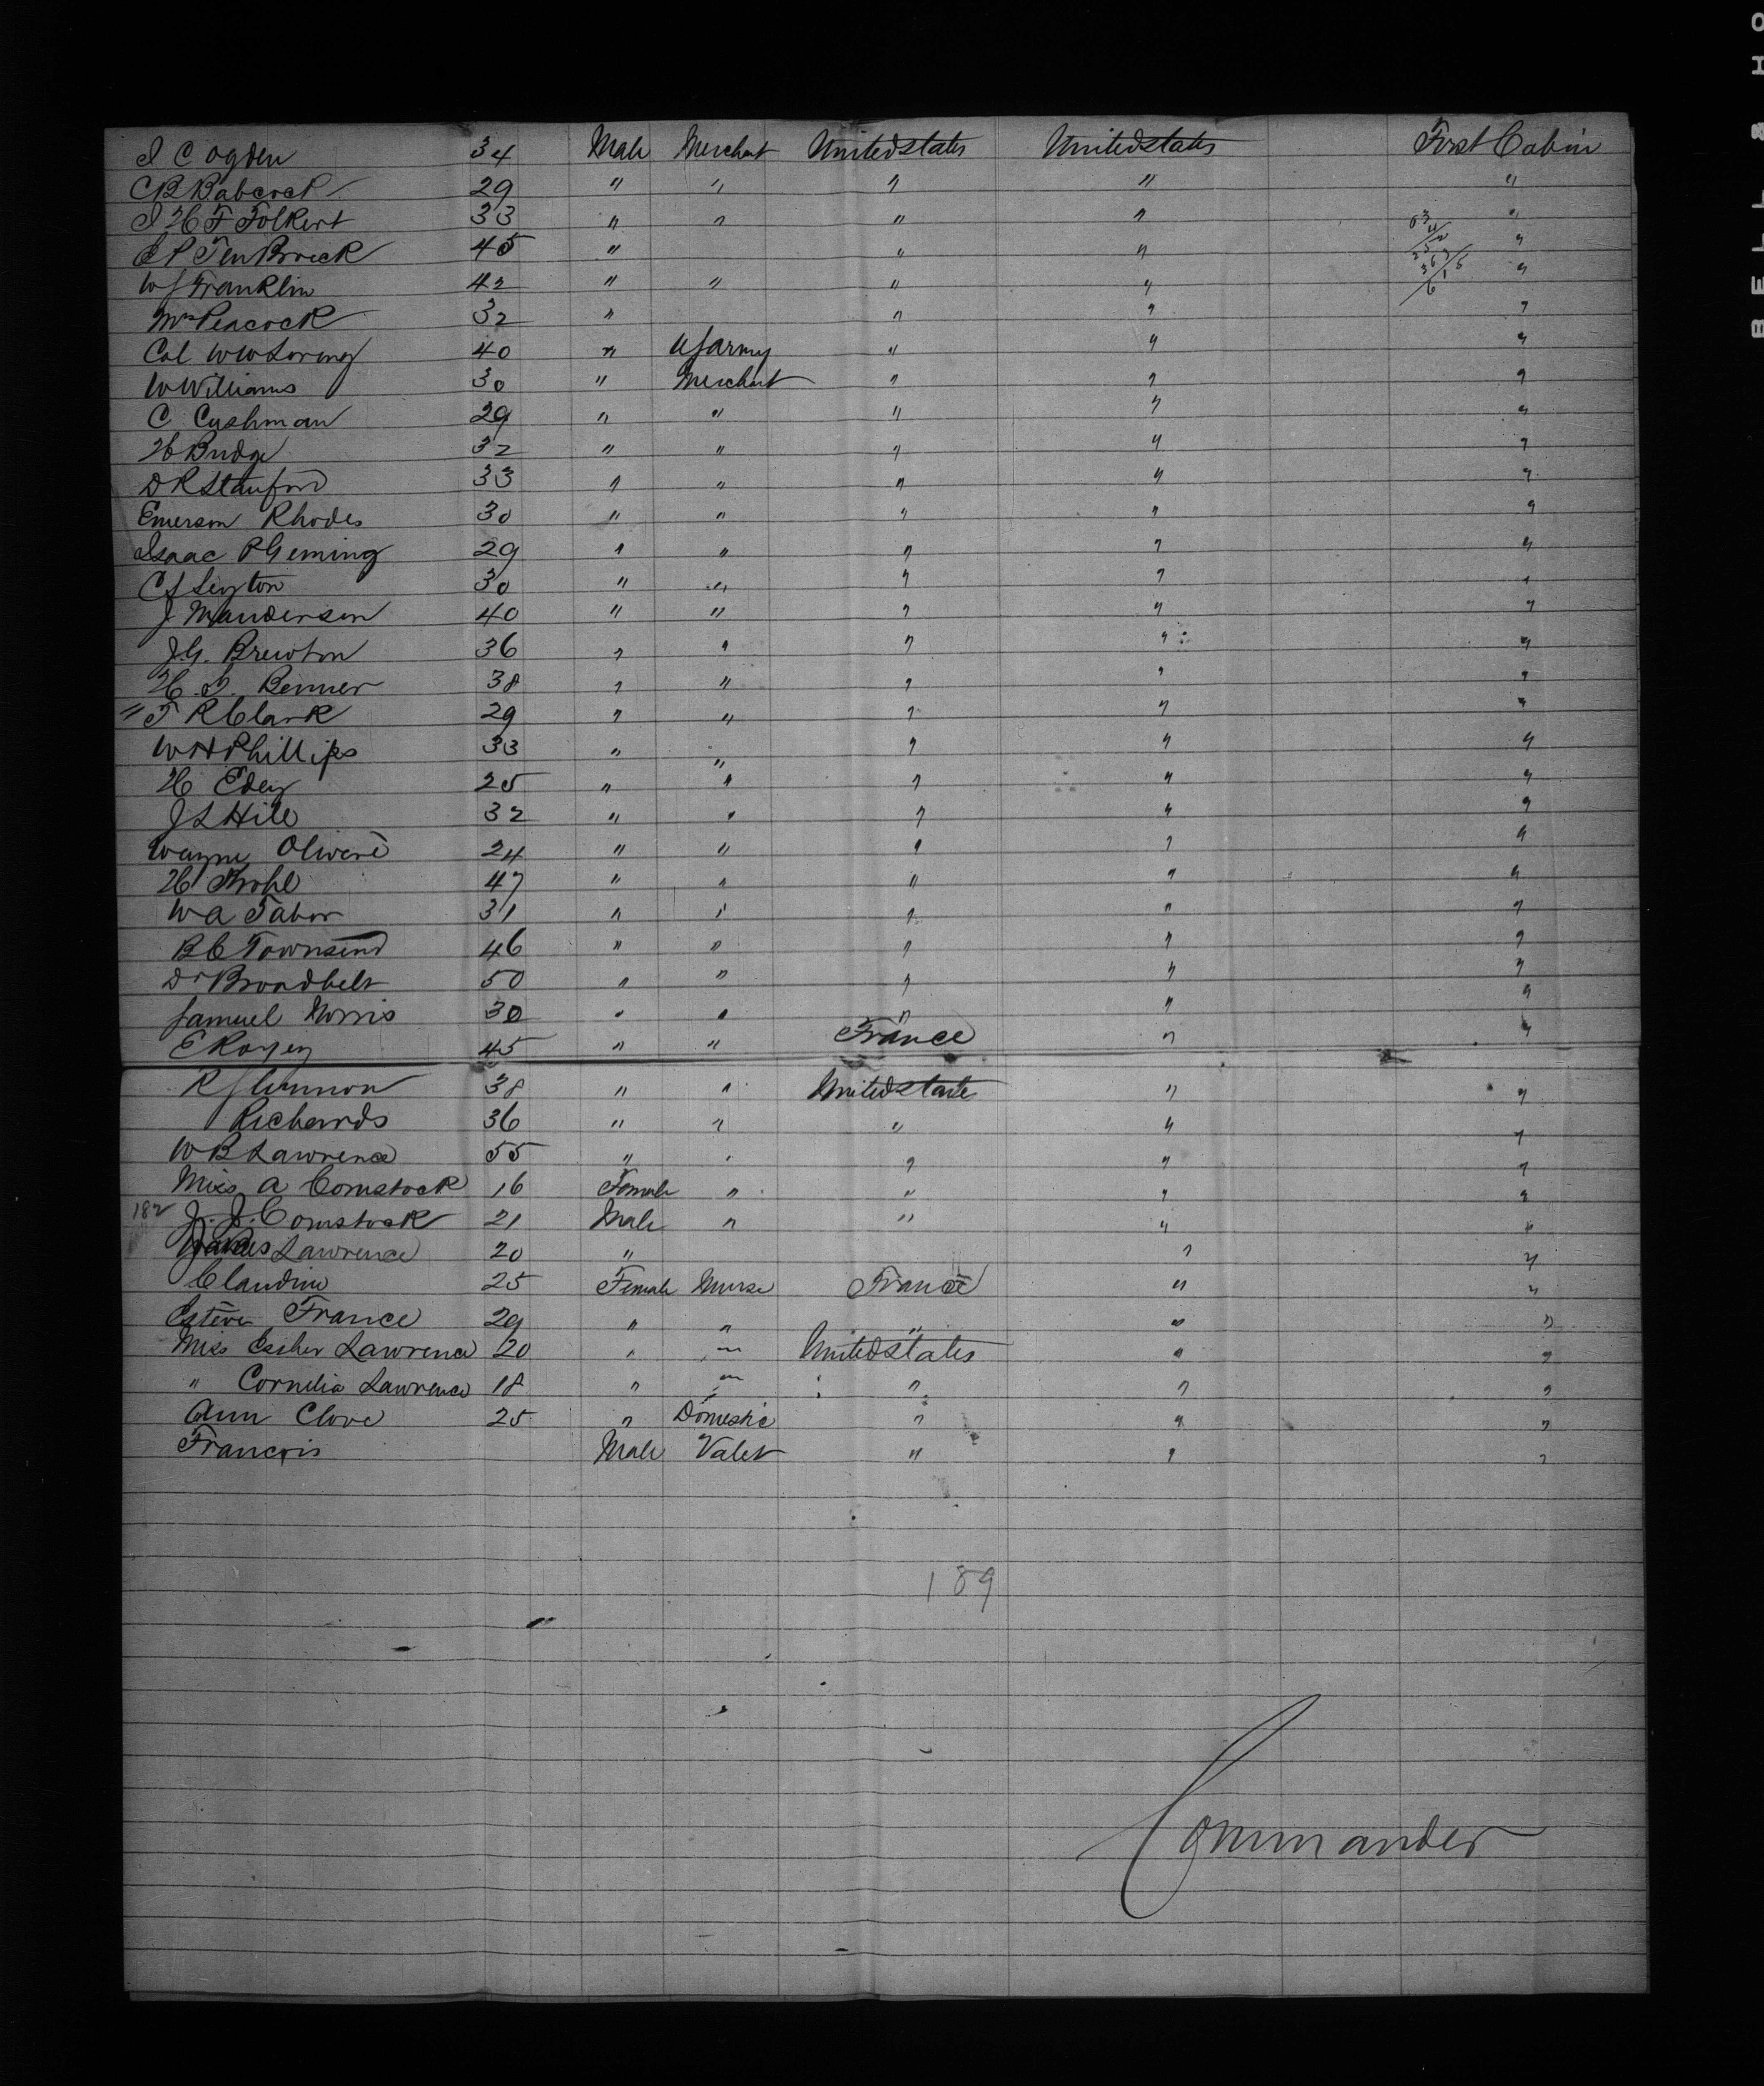 J C Ogden 34 Male Merchant United states United states First Cabin
C B Babcock 29 " " " " "
J H F Folkert 33 " " " " "
E P TenBroeck 45 " " " "
W J Franklin 42 " " " " "
Mr Peacock 32 " " " "
Col W W Loring 40 " US army " " "
W Williams 30 " Merchant " " "
C Cushman 29 " " " " "
H Budge 32 " " " " "
D R Stanford 33 " " " " "
Emerson Rhodes 30 " " " " "
Isaac P Geming 29 " " " " "
C S Leyton 30 " " " " "
J Manderson 40 " " " " "
J.G. Brewton 36 " " " " "
H. I. Benner 38 " " " " "
" T R Clark 29 " " " " "
W H Phillips 33 " " " " "
H Edey 25 " " " " "
J S Hill 32 " " " " "
Wayne Olivere 24 " " " " "
H 47 " " " " "
W A Tabor 31 " " " " "
B C Townsend 46 " " " " "
Dr Broadbelt 50 " " " " "
Samuel Norris 30 " " " " "
E Royer 45 " " France " "
R J 38 " " United state " "
Richards 36 " " " " "
W B Lawrence 55 " " " " "
Miss A Comstock 16 Female " " " "
182 J. J. Comstock 21 Male " " " "
James Lawrence 20 " " "
Claudine 25 Female Nurse France " "
Estever France 29 " " " " "
Miss Esther Lawrence 20 " " United States " "
" Cornelia Lawrence 18 " " " " "
Ann Clove 25 " Domestic " " "
Francois Male Valet " " "
189
Commander
BELL & HO